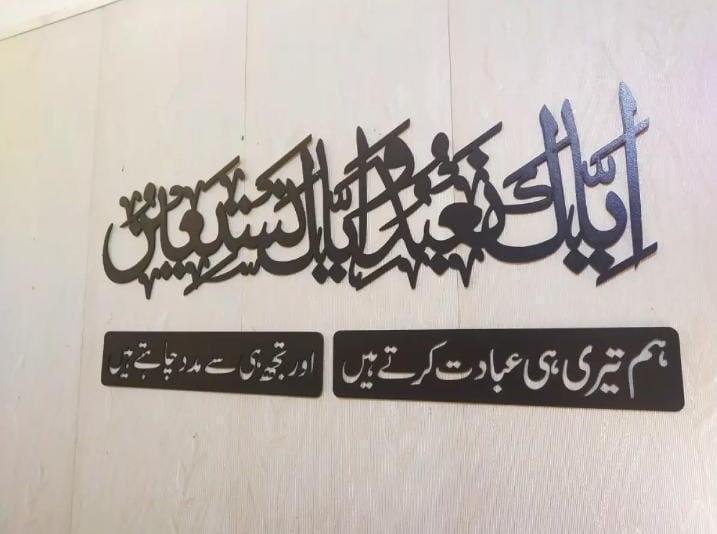 إِيَّاكَ نَعْبُدُ وَإِيَّاكَ نَسْتَعِينُ
ہم تیری ہی عبادت کرتے ہیں اور تجھ ہی سے مدد چاہتے ہیں